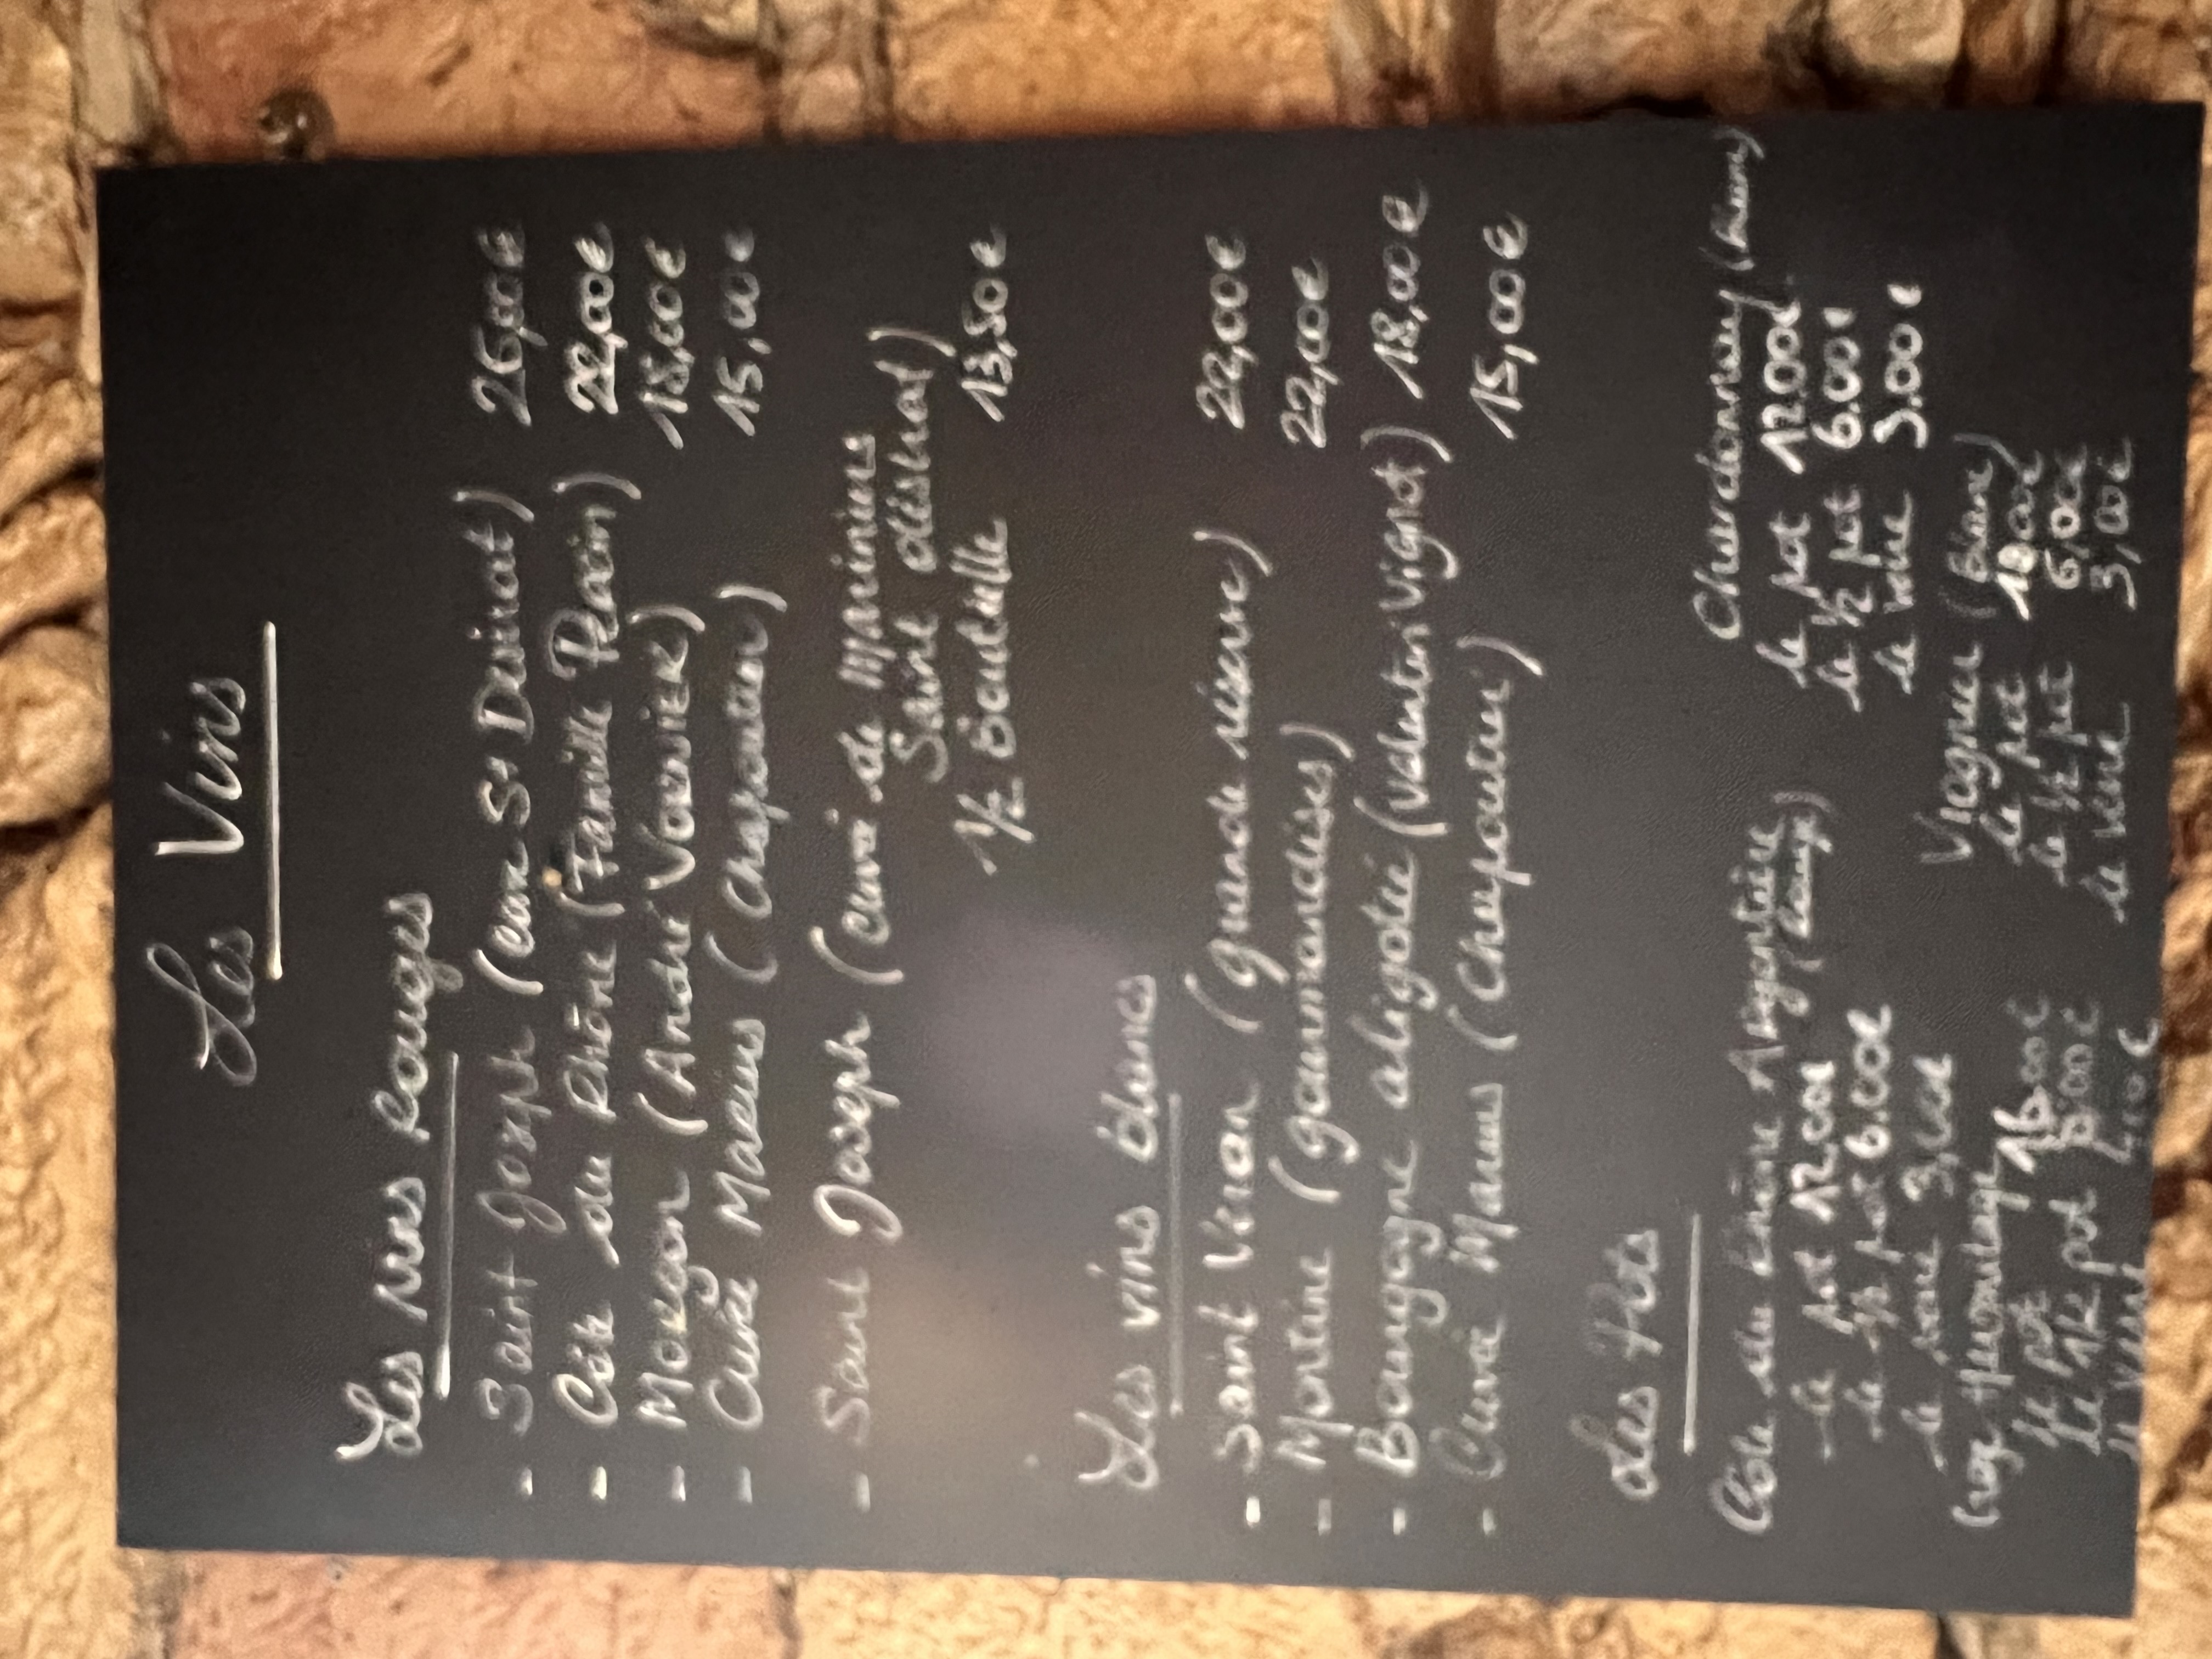 Les Vins
Les vins Rouges
- Saint Joseph (Cave St Désirat) 26,00€
- Côte du Rhône (Famille Perrin) 22,00€
- Morgon (André Vonnier) 18,00€
- Cuvée Marius (Chapoutier) 15,00€
- Saint Joseph (cuvée de Mariniers
Saint désirat)
1/2 Bouteille 13,50€
Les vins blancs
- Saint Véran (grande réserve) 22,00€
- Montine (gourmandises) 22,00€
- Bourgogne aligotée (Valentin Vignot) 18,00€
- Cuvée Marius (Chapoutier) 15,00€
Les Pots
Côte du Rhône Argentière (Rouge)
le pot 12.00€
le 1/2 pot 6.00€
le verre 3,00€
Croze Hermitage
le pot 16.00€
le 1/2 pot 8.00€
le verre
Chardonnay (Blanc)
le pot 12.00€
le 1/2 pot 6.00€
le verre 3.00€
Viognier (Blanc)
le pot
le 1/2 pot 6,00€
le verre 3,00€